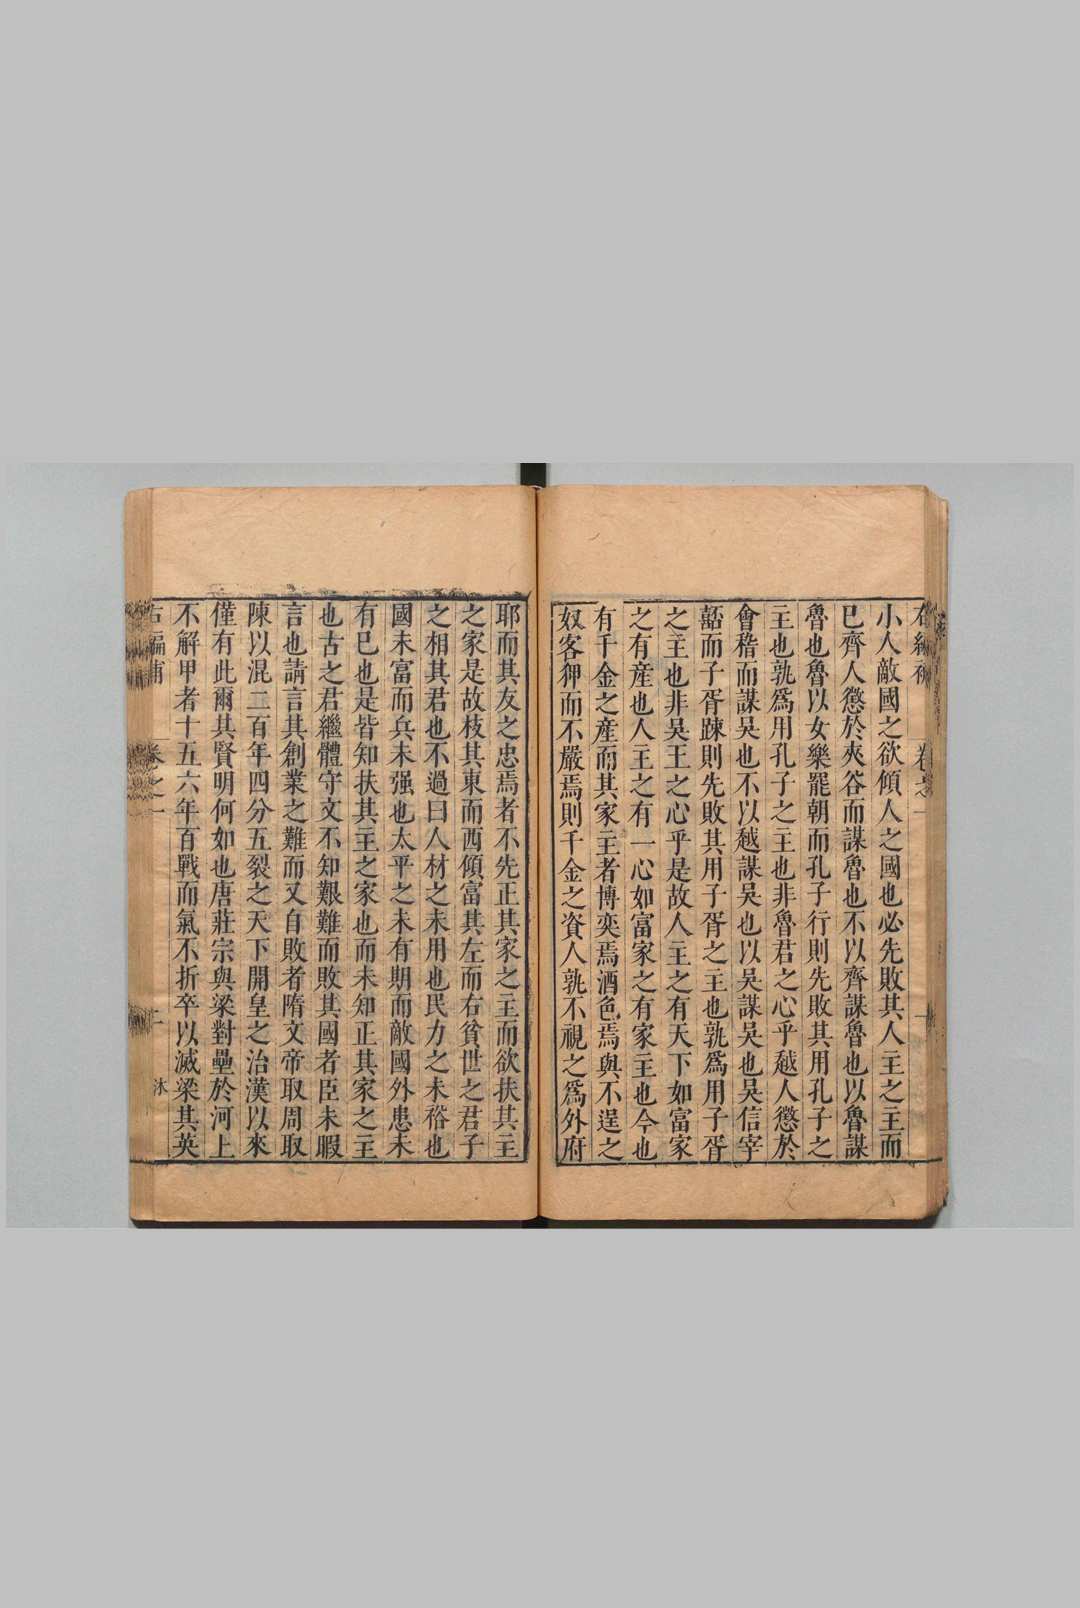 右編補 卷之一
小人敵國之欲傾人之國也必先敗其人主之主而
已齊人懲於夾谷而謀魯也不以齊謀魯也以魯謀
魯也魯以女樂罷朝而孔子行則先敗其用孔子之
主也孰爲用孔子之主也非魯君之心乎越人懲於
會稽而謀吳也不以越謀吳也以吳謀吳也吳信宰
嚭而子胥踈則先敗其用子胥之主也孰爲用子胥
之主也非吳王之心乎是故人主之有天下如富家
之有産也人主之有一心如富家之有家主也今也
有千金之産而其家主者博奕焉酒色焉與不逞之
奴客狎而不嚴焉則千金之資人孰不視之爲外府
耶而其友之忠焉者不先正其家之主而欲扶其主
之家是故枝其東而西傾富其左而右貧世之君子
之相其君也不過曰人材之未用也民力之未裕也
國未富而兵未强也太平之未有期而敵國外患未
有已也是皆知扶其主之家也而未知正其家之主
也古之君繼體守文不知艱難而敗其國者臣未暇
言也請言其創業之難而又自敗者隋文帝取周取
陳以混二百年四分五裂之天下開皇之治漢以來
僅有此爾其賢明何如也唐莊宗與梁對壘於河上
不解甲者十五六年百戰而氣不折卒以滅梁其英
右編補 卷之一 二